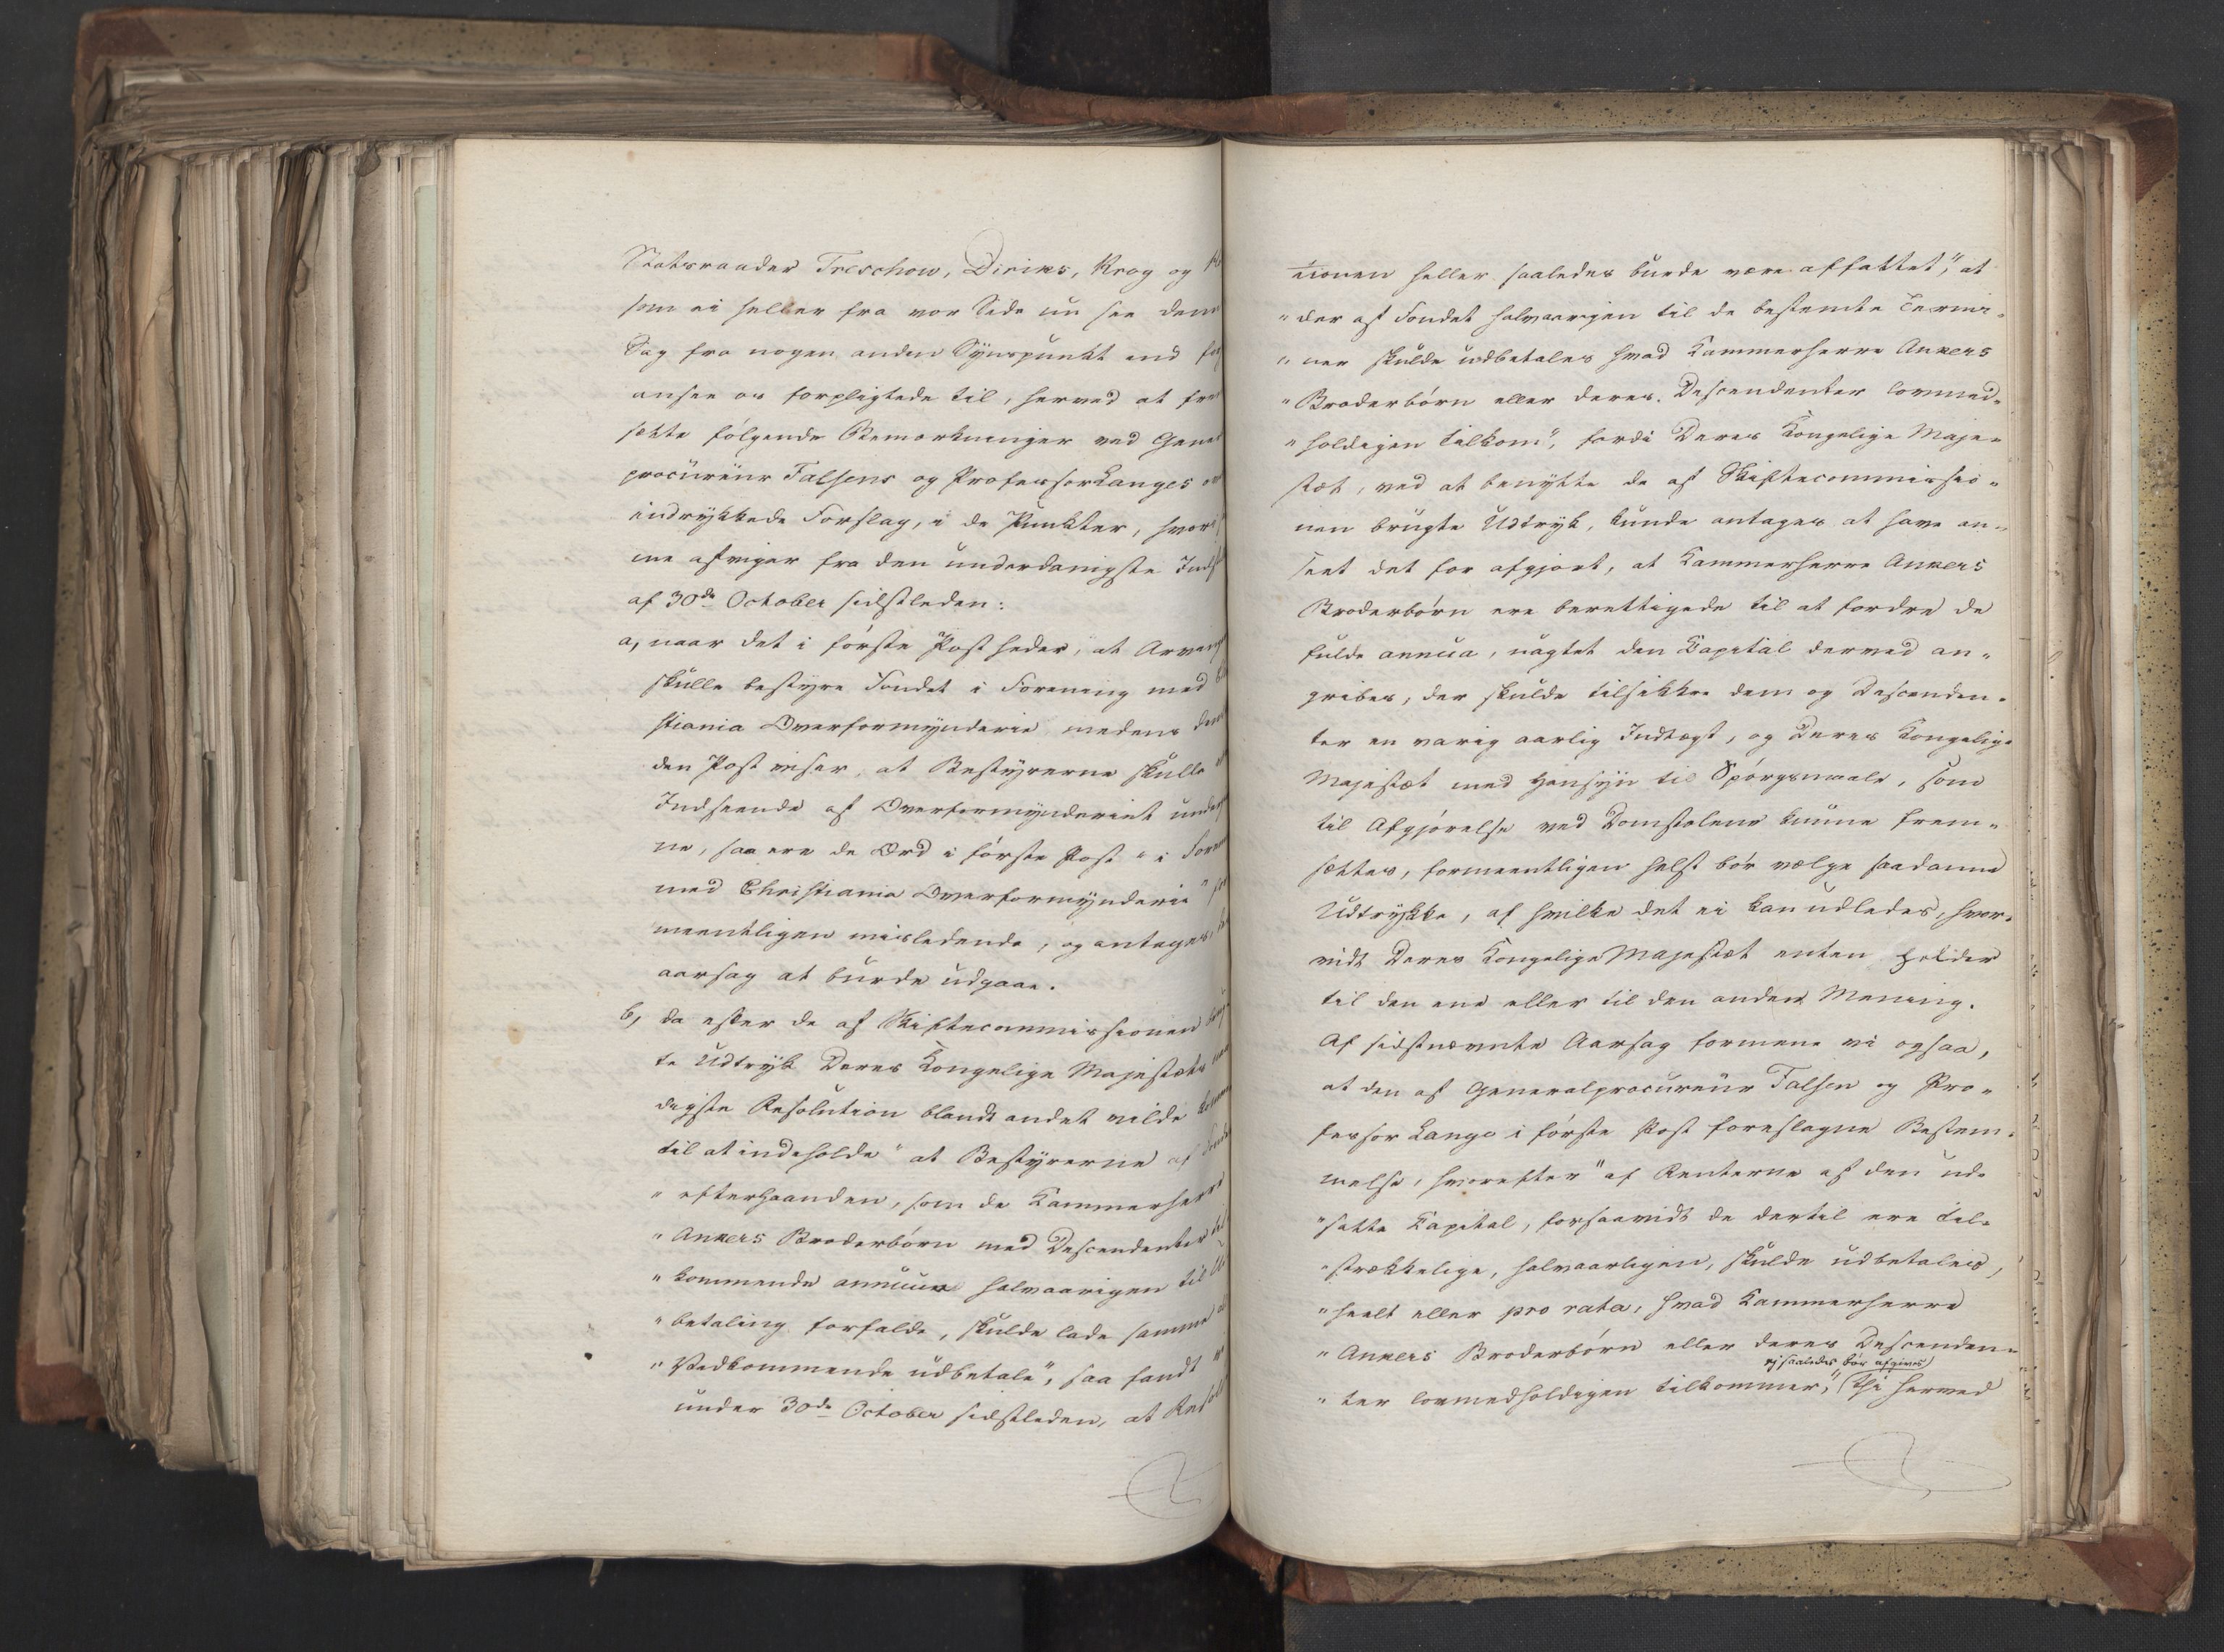 Statsraader Treschow, Diriks, Krog og
som ei heller fra vor Side nu see denn
Sag fra nogen anden Synspunkt end
ansee os forpligtede til, herved at frem
sætte følgende Bemærkninger ved Gene
procureur Falsens og Professor Langes
indrykkede Forslag, i de Punkter, hvori
me afviger fra den underdanigste Indst
af 30de October sidstleden:
a, naar det i første Post heder, at Arving
skulle bestyre Fondet i Forening med
stiania Overformynderie medens
den Post viser, at Bestyrerne skulle
Indseende af Overformynderiet under
ne, saa ere de Ord i første Post "i Foren
med Christiania Overformynderie"
meentligen misledende, og antages,
aarsag at burde udgaae.
b, da efter de af Skiftecommissionen brug
te Udtryk Deres Kongelige Majestæts naa
digste Resolution blandt andet vilde komme
til at indeholde "at Bestyrerne af Fonde
" efterhaanden, som de Kammerherre
" Ankers Broderbørn med Descendenter til
" kommende annuua halvaarigen til Ud
" betaling forfalde, skulde lade samme
" Vedkommende udbetale", saa fandt
under 30de October sidstleden, at Resol
tionen heller saaledes burde være affattet, "at
" der af Fondet halvaarigen til de bestemte Termi-
" ner skulde udbetales hvad Kammerherre Ankers
" Broderbørn eller deres Descendenter lovmed-
" holdigen tilkom", fordi Deres Kongelige Maje-
stæt, ved at benytte de af Skiftecommissio-
nen brugte Udtryk, kunde antages at have an-
seet det for afgjort, at Kammerherre Ankers
Broderbørn ere berettigede til at fordre de
fulde annua, uagtet den Capital derved an-
gribes, der skulde tilsikkre dem og Descenden-
ter en varig aarlig Indtægt, og Deres Kongelige
Majestæt med Hensyn til Spørgsmaale, som
til Afgjørelse ved Domstolene kunne frem-
sættes, formeentligen helst bør vælge saadanne
Udtrykke, af hvilke det ei kan udledes, hvor-
vidt Deres Kongelige Majestæt enten helder
til den ene eller til den anden Mening.
Af sidstnævnte Aarsag formene vi ogsaa,
at den af Generalprocureur Falsen og Pro-
fessor Lange i første Post foreslagne Bestem-
melse, hvorefter "af Renterne af den ud-
" satte Capital, forsaavidt de dertil ere til-
" strækkelige, halvaarligen, skulde udbetales,
" heelt eller pro rata, hvad Kammerherre
" Ankers Broderbørn eller deres Descenden-
ej saaledes bør afgives
" ter lovmedholdigen tilkommer", thi herved